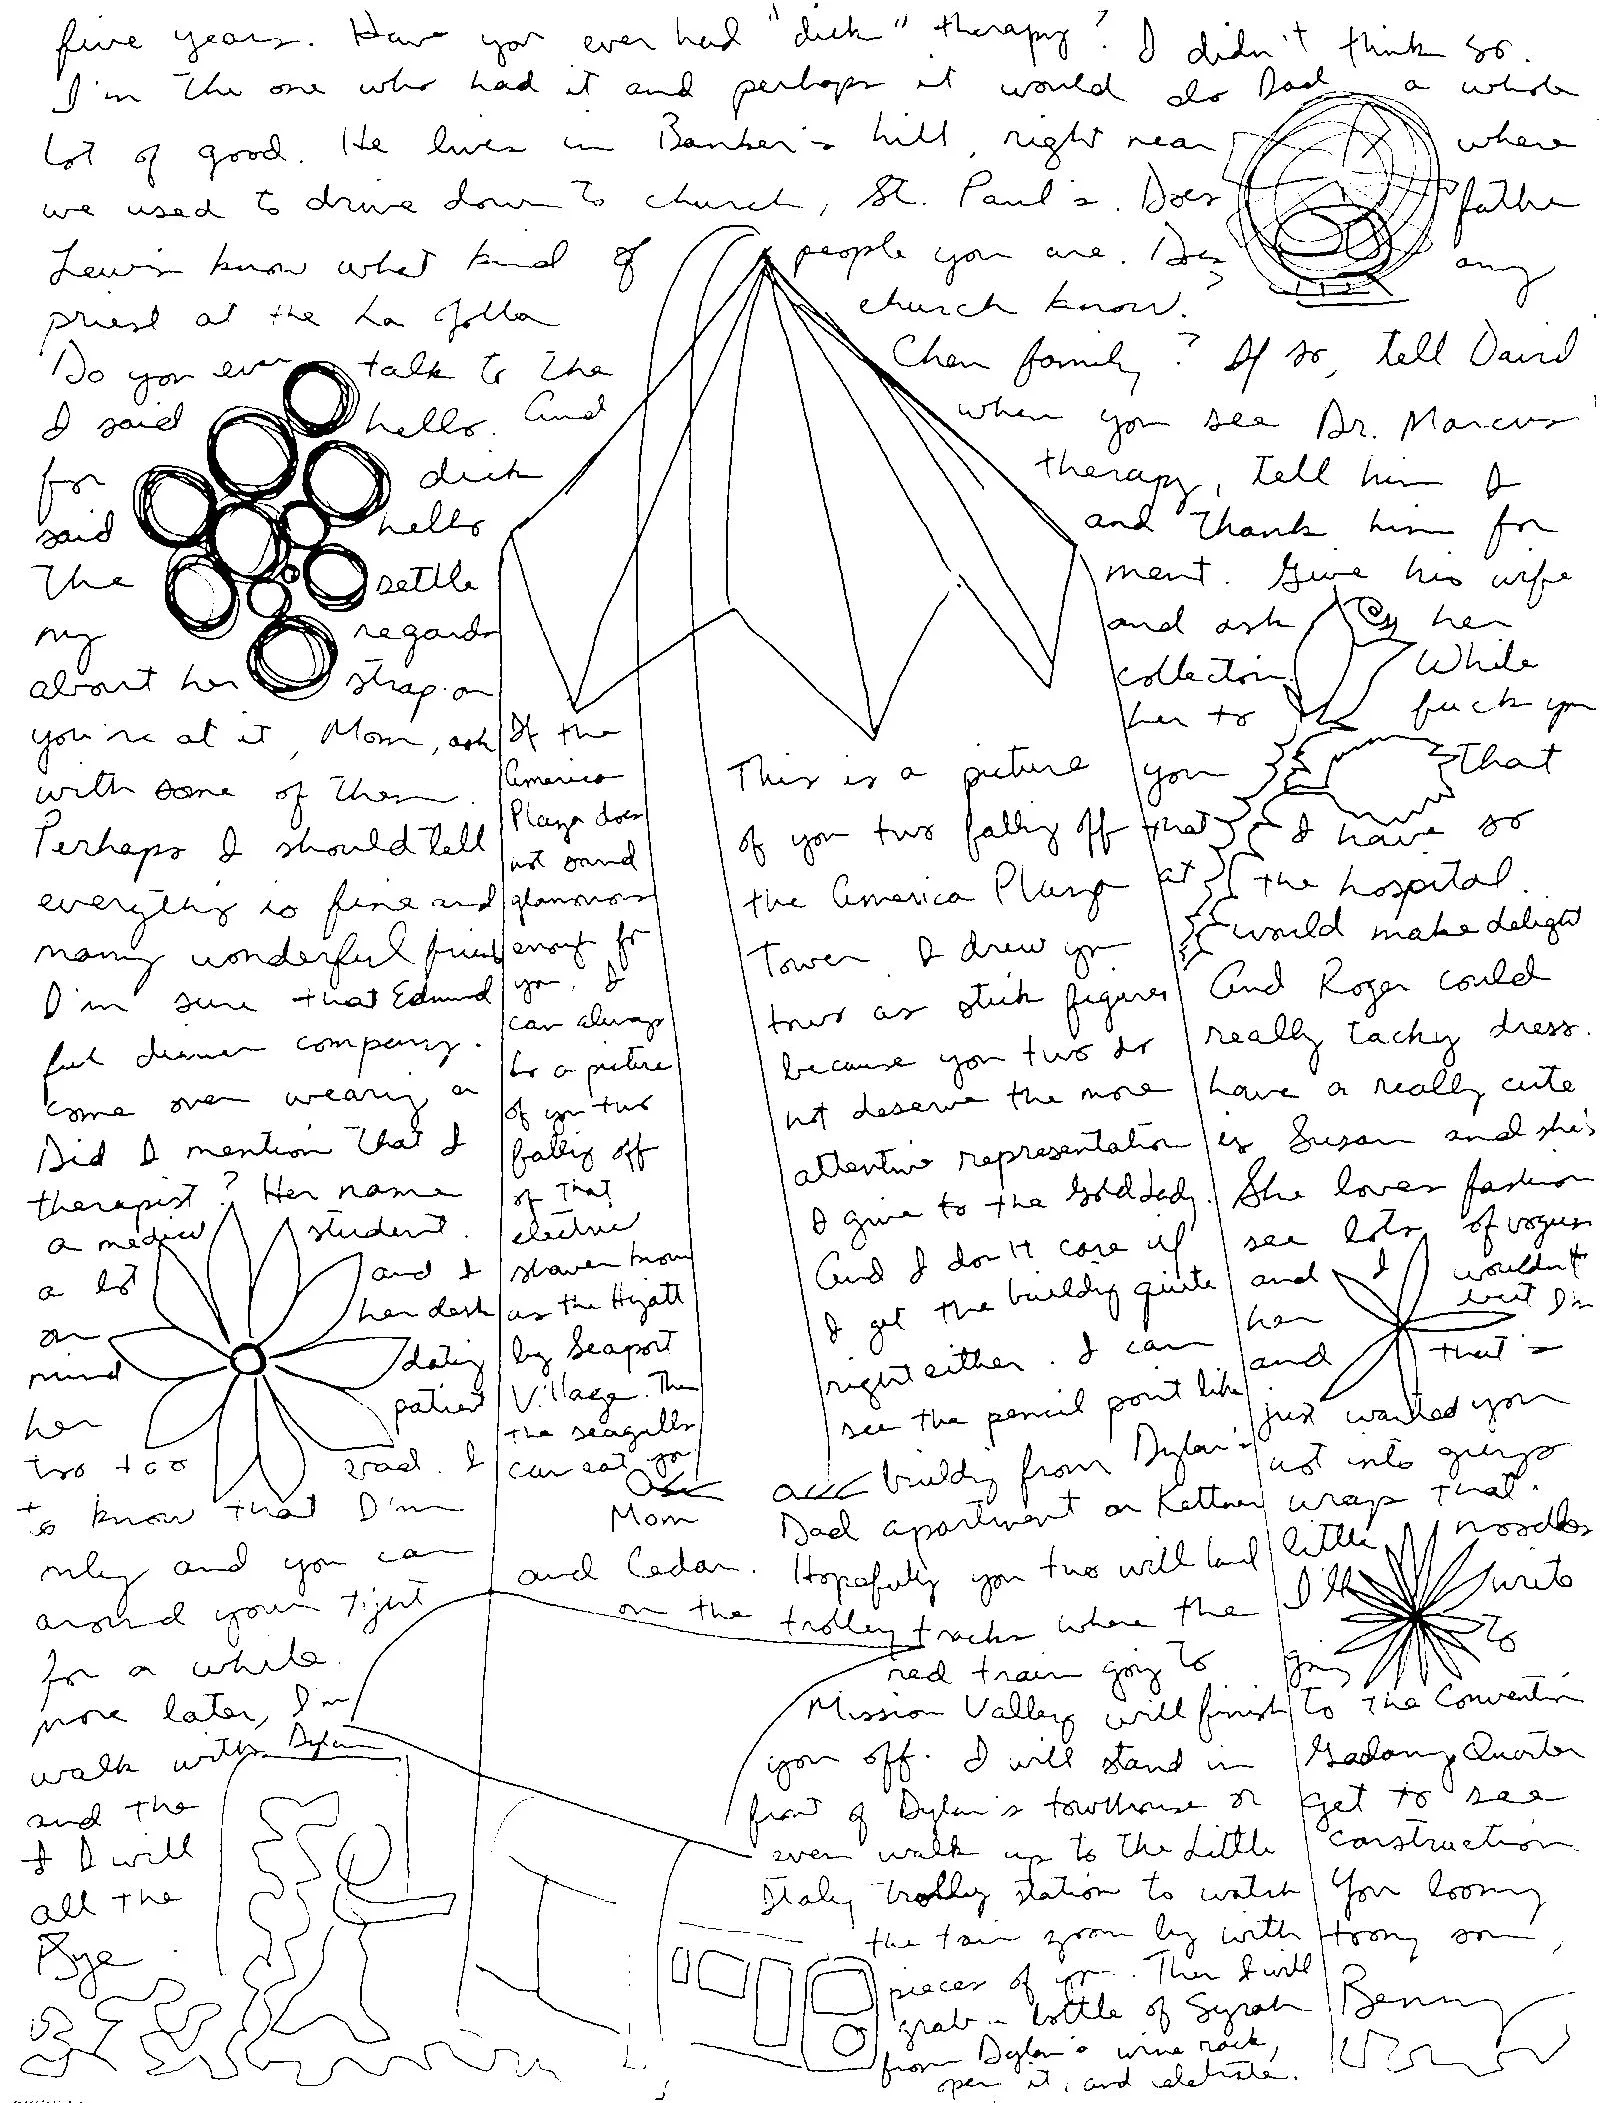 five years. Have you ever had "dick" therapy? I didn't think so.
I'm the one who had it and perhaps it would do Dad a whole
lot of good. He lives in Banker's hill, right near where
we used to drive down to church, St. Paul's. Does father
Lewis know what kind of people you are. Does any
priest at the La Jolla church know?
Do you ever talk to the Chen family? If so, tell David
I said hello. And when you see Dr. Marcus
for dick therapy, tell him I
said hello and thank him for
the settle ment. Give his wife
my regards and ask her
about her strap-on collection. While
you're at it, Mom, ask her to fuck you
with some of them.
Perhaps I should tell you that
everything is fine and that I have so
many wonderful friend at the hospital.
I'm sure that Edmund would make delight
ful dinner company. And Roger could
come over wearing a really tacky dress.
Did I mention that I have a really cute
therapist? Her name is Susan and she's
a medical student. She loves fashion
and I see lots of vogues
a lot her desk and I wouldn't
on dating her but I'm
mind patient and that's
her
too too bad. I just wanted you
to know that I'm not into guys
only and you can wrap that
around your tight little noodles
for a while. I'll write
more later, I'm going to
walk with Dylan to the Convention
and the Quarter
I I will get to see
all the construction
Bye. Your loony
toony son,
Benny
If the
America
Plaza does
not sound
glamorous
enough for
you, I
can always
do a picture
of you two
falling off
of that
electric
shaver known
as the Hyatt
by Seaport
Village. Then
the seagulls
can eat you
Mom
This is a picture
of you two falling off
the America Plaza
Tower. I drew you
two as stick figures
because you two do
not deserve the more
attentive representation
I give to the Gold Lady.
And I don't care if
I get the building quite
right either. I can
see the pencil point like
building from Dylan's
Dad apartment on Kettner
and Cedar. Hopefully you two will land
on the trolley tracks where the
red train going to
Mission Valley will finish
you off. I will stand in
front of Dylan's towhouse or
even walk up to the Little
Italy trolley station to watch
the train zoom by with
pieces of you. Then I will
grab a bottle of Syrah
from Dylan's wine rack,
open it, and celebrate.